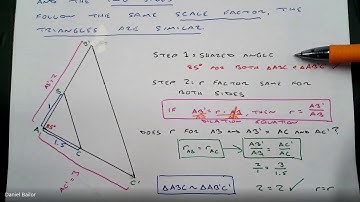 AND THE TWO SIDES
FOLLOW THE SAME SCALE FACTOR, THE
TRIANGLES ARE SIMILAR
STEP 1: SHARED ANGLE
85° FOR BOTH ΔABC & ΔAB'C'
STEP 2: r FACTOR SAME FOR
BOTH SIDES
IF AB' = r · AB, THEN r = AB'/AB
DILATION EQUATION
DOES r FOR AB AND AB' = AC AND AC'?
r AB = r AC → AB'/AB = AC'/AC
2/1 = 3/1.5
ΔABC ~ ΔAB'C'
2 = 2 ✓ r = r
B'
AB' = 2
B
1
A
85°
1.5
C
AC' = 3
C'
Daniel Bailor